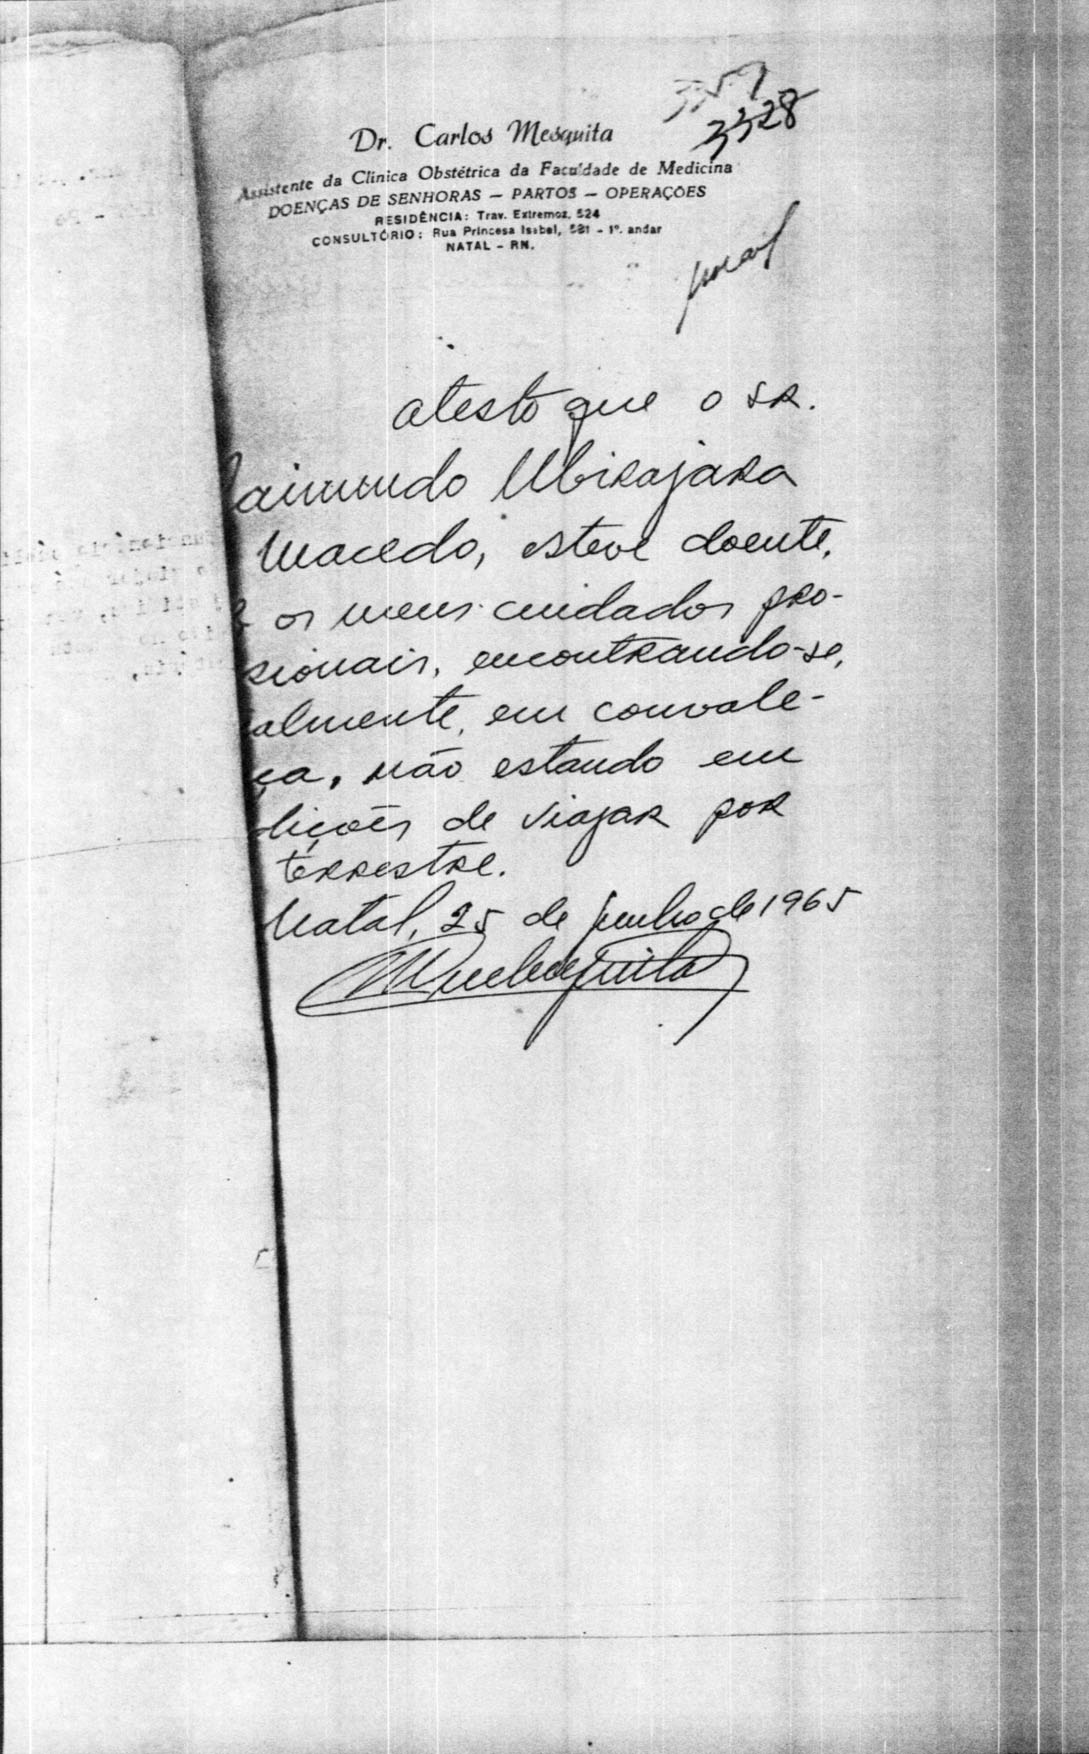 3328
Dr. Carlos Mesquita
Assistente da Clínica Obstétrica da Faculdade de Medicina
DOENÇAS DE SENHORAS — PARTOS — OPERAÇÕES
RESIDÊNCIA: Trav. Extremoz, 524
CONSULTÓRIO: Rua Princesa Isabel, 581 - 1º. andar
NATAL - RN.
atesto que o SR.
Raimundo Ubirajara
Macedo, esteve doente,
os meus cuidados pro-
sionais, encontrando-se,
almente, em convale-
ça, não estando em
dições de viajar por
terrestre.
Natal, 25 de junho de 1965